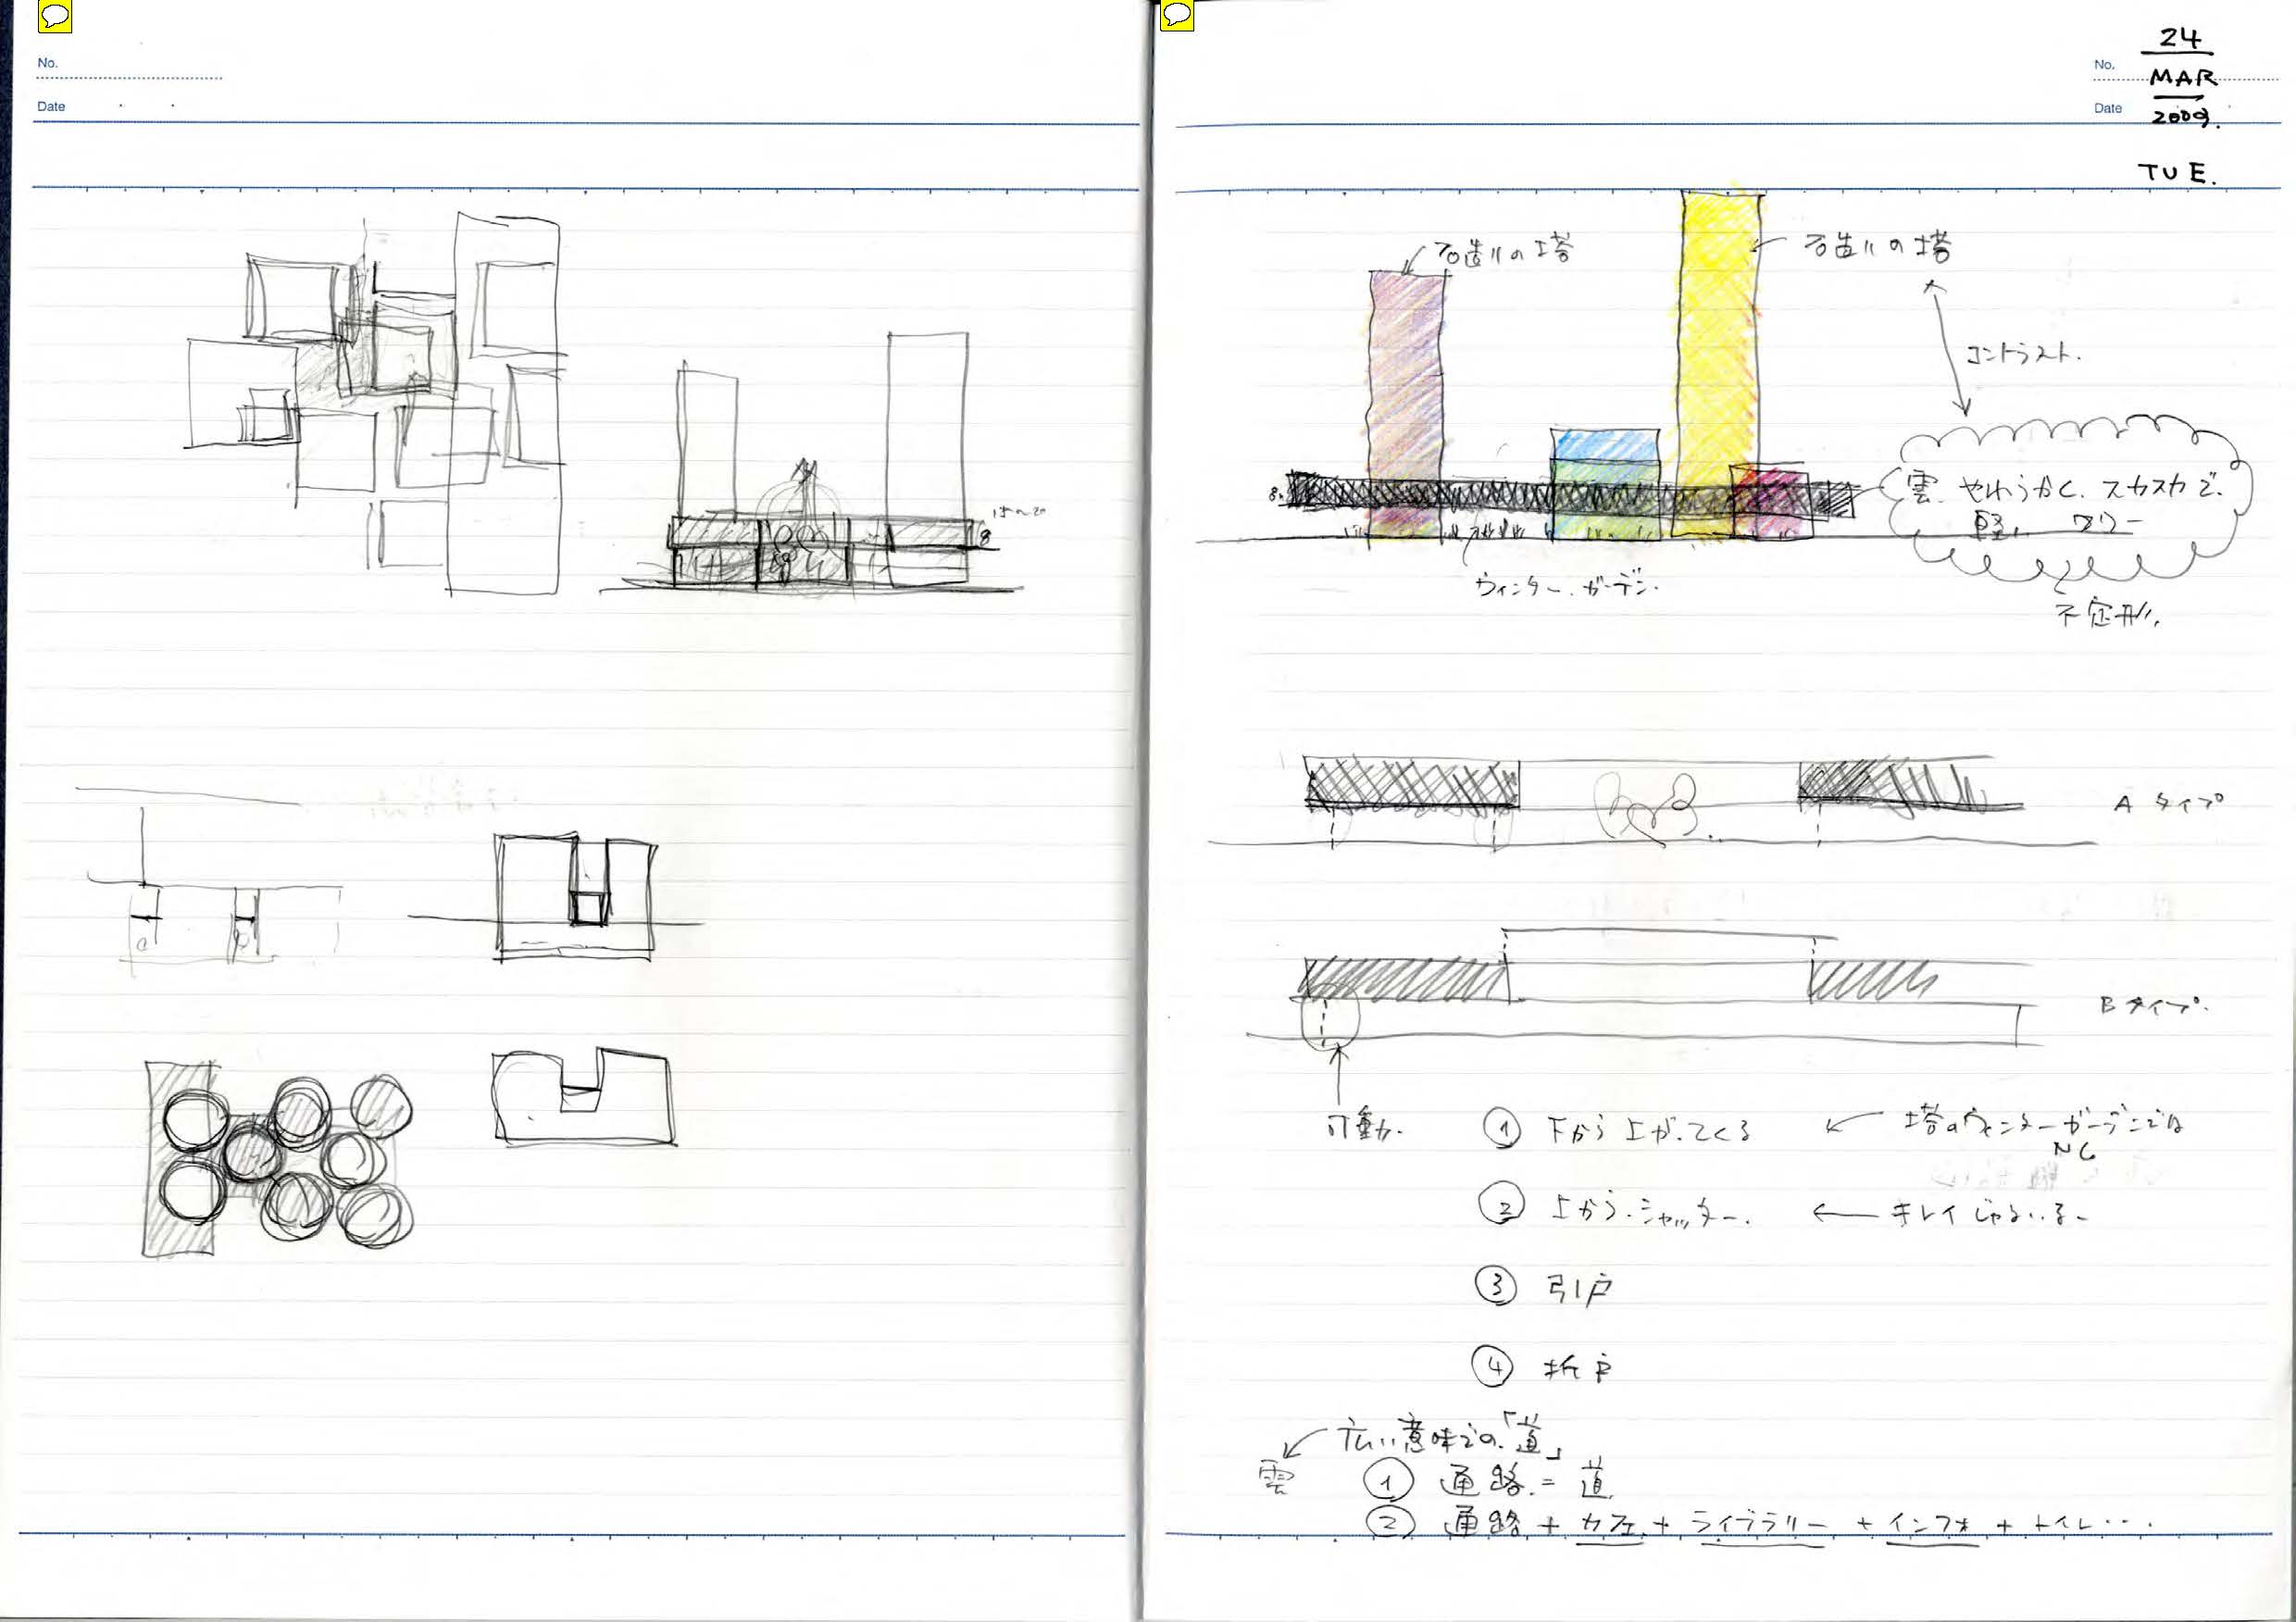 No.
Date
No.
Date
24
MAR
2009.
TUE.
8
石造りの塔
石造りの塔
コントラスト.
雲. やわらかく. スカスカで.
軽い フリー
不定形.
ウィンター. ガーデン.
A タイプ
B タイプ.
可動.
① 下から上がってくる ← 塔のウィンターガーデンでは
NG
② 上から. シャッター. ← キレイじゃない.
③ 引戸
④ 折戸
広い意味での.「道」
雲
① 通路. = 道
② 通路 + カフェ + ライブラリー + インフォ + トイレ...